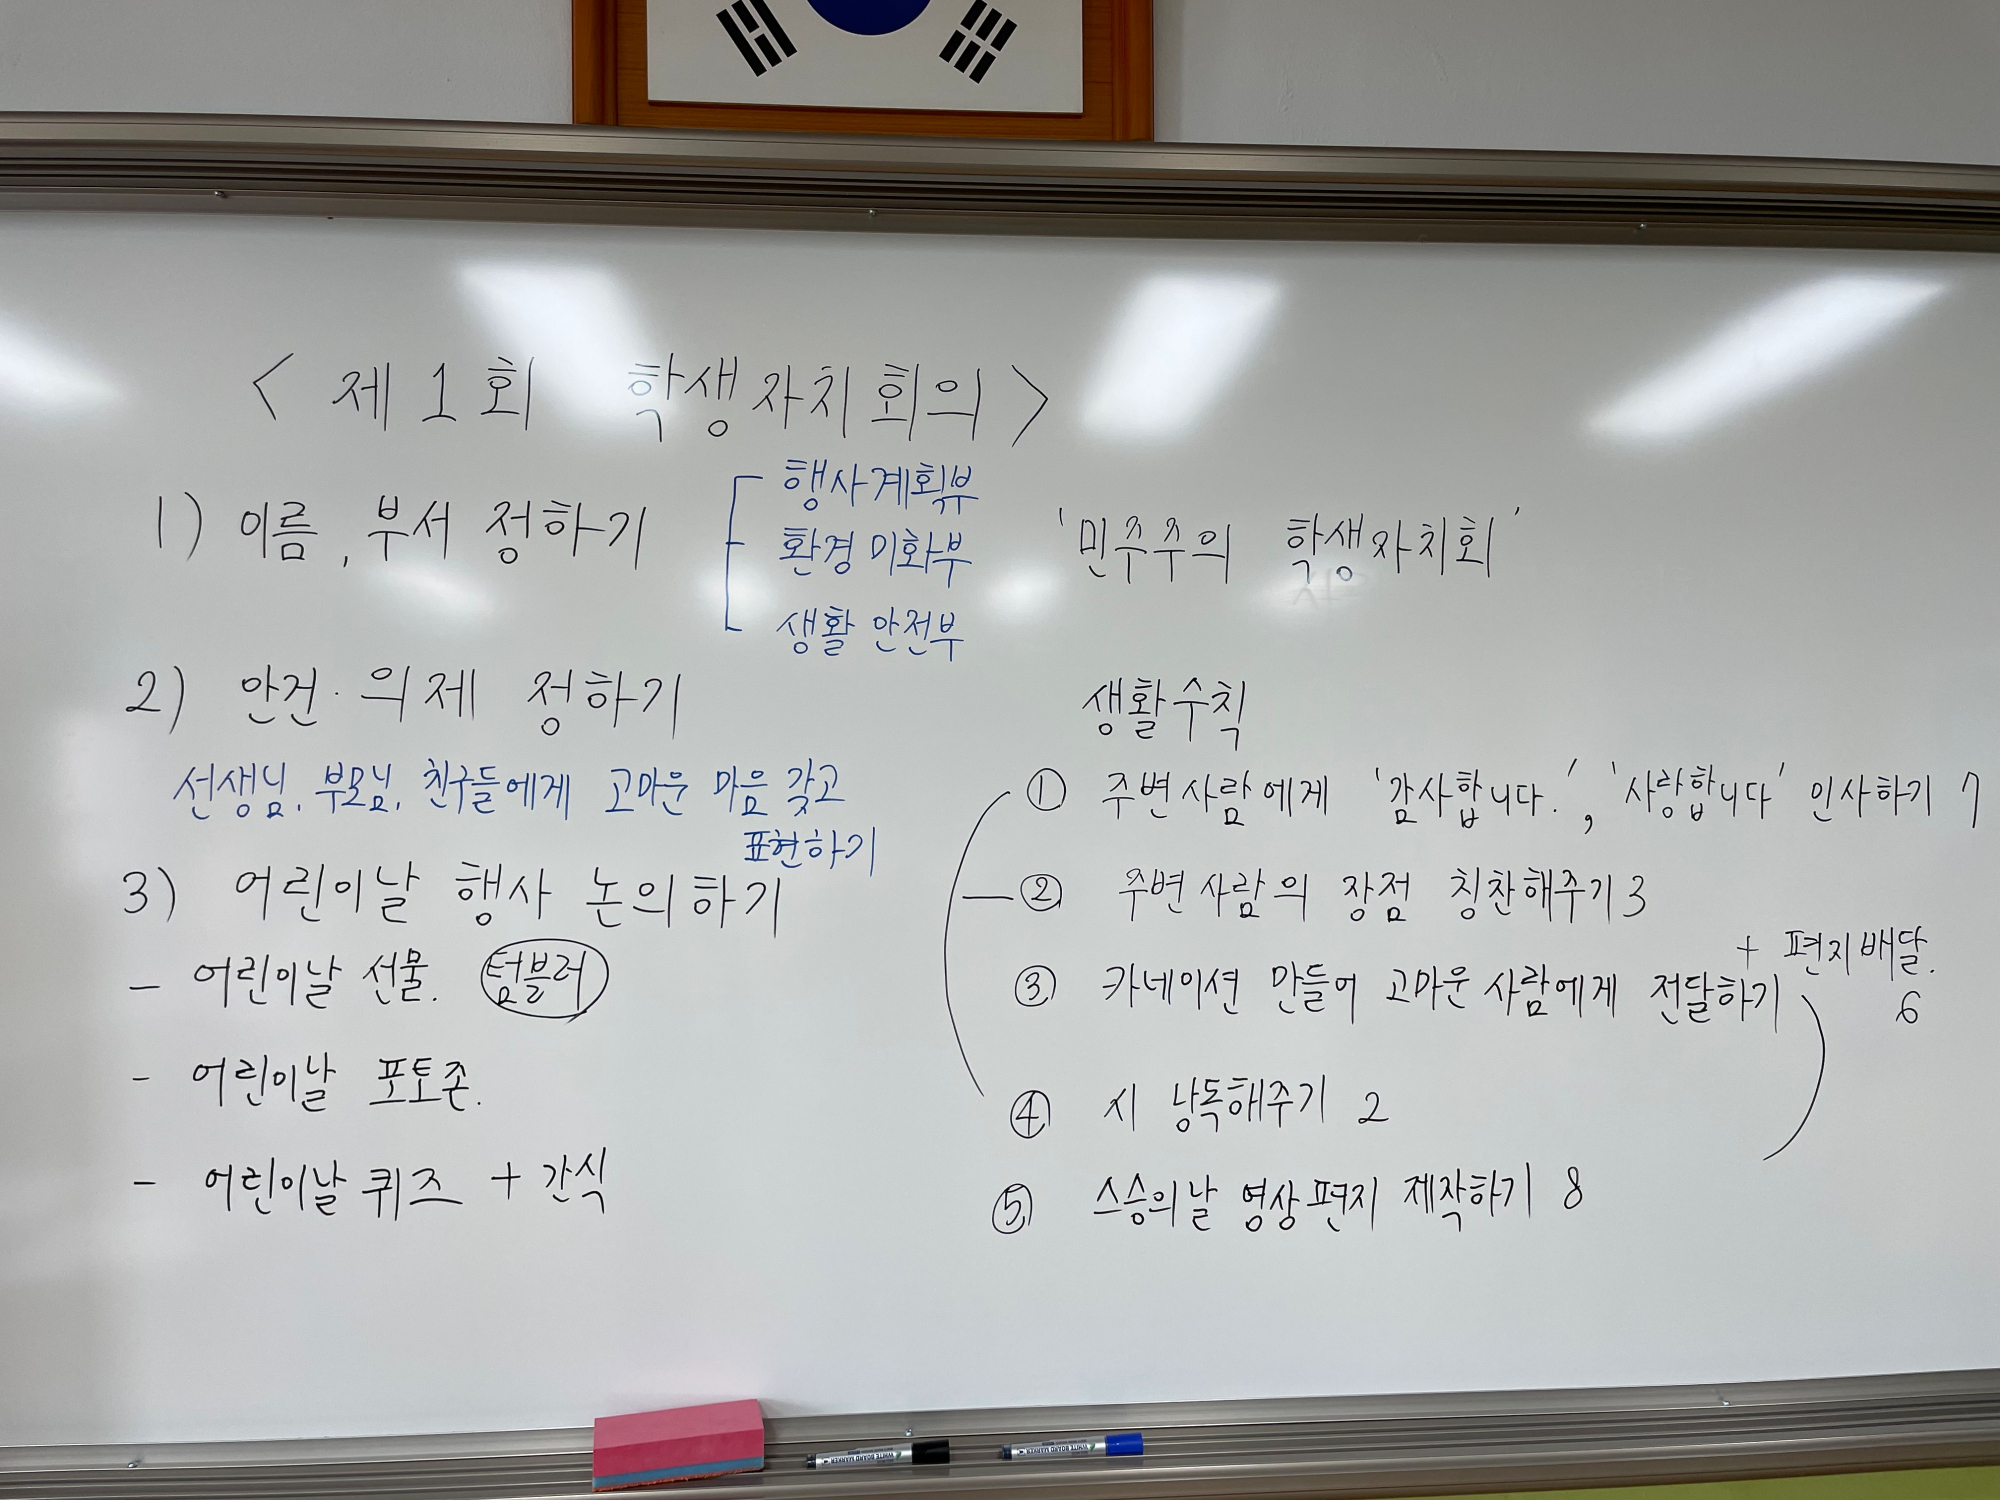 < 제 1 회 학생자치회의 >
1) 이름, 부서 정하기
행사계획부
환경 미화부
생활 안전부
'민주주의 학생자치회'
2) 안건·의제 정하기
선생님, 부모님, 친구들에게 고마운 마음 갖고
표현하기
3) 어린이날 행사 논의하기
- 어린이날 선물. 텀블러
- 어린이날 포토존.
- 어린이날 퀴즈 + 간식
생활수칙
① 주변사람에게 '감사합니다.', '사랑합니다' 인사하기 7
② 주변 사람의 장점 칭찬해주기 3
③ 카네이션 만들어 고마운 사람에게 전달하기
+ 편지배달.
6
④ 시 낭독해주기 2
⑤ 스승의날 영상편지 제작하기 8
WHITE BOARD MARKER
WHITE BOARD MARKER